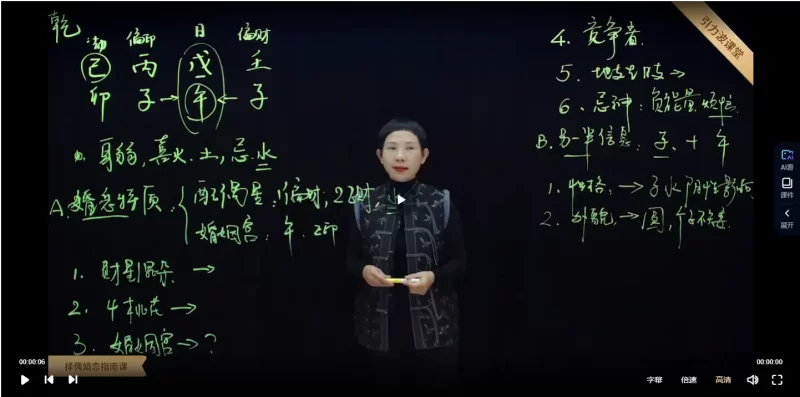 乾
劫 偏印 日 偏财
己 丙 戊 壬
卯 子→午←子
身弱,喜火.土,忌水
A.婚恋特质:
配偶星:1偏财,2正财
婚姻宫:午.正印
1. 财星混杂 →
2. 4桃花 →
3. 婚姻宫→?
4. 竞争者.
5. 地支
6. 忌神:负能量.烦忙
B.另一半信息:子、+ 午
1. 性格,→子水
2. 外貌→圆,个子不高.
引力波课堂
AI看
课件
展开
00:00:06
00:00:00
择偶婚恋指南课
字幕 倍速 高清